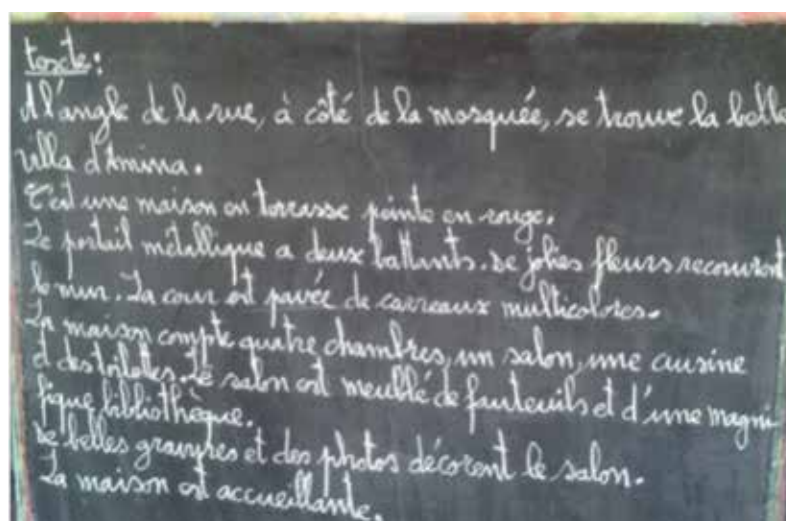 texte:
A l'angle de la rue, à côté de la mosquée, se trouve la belle
villa d'Amina.
C'est une maison en terrasse peinte en rouge.
Le portail métallique a deux battants. De jolies fleurs recouvrent
le mur. La cour est pavée de carreaux multicolores.
La maison compte quatre chambres, un salon, une cuisine
et des toilettes. Le salon est meublé de fauteuils et d'une magni-
fique bibliothèque.
De belles gravures et des photos décorent le salon.
La maison est accueillante.